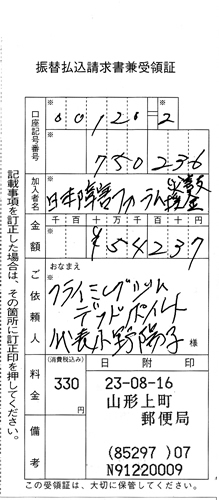 振替払込請求書兼受領証
口座記号番号
00120 2
750236
加入者名
日本障害フォーラム
千百十万千百十円
金額
¥54237
ご依頼人
おなまえ
フライーングリツム
デッドポイント
代表小野陽子 様
料金
(消費税込み)
330
円
日附印
23-08-16
山形上町
郵便局
(85297 )07
N91220009
備考
記載事項を訂正した場合は、その箇所に訂正印を押してください。
この受領証は、大切に保管してください。